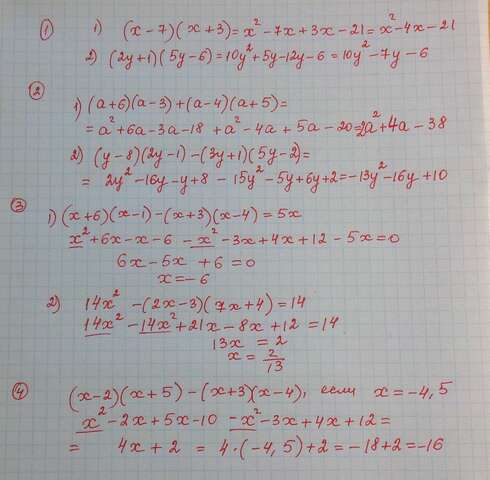 ① 1) (x-7)(x+3)=x²-7x+3x-21=x²-4x-21
2) (2y+1)(5y-6)=10y²+5y-12y-6=10y²-7y-6
② 1) (a+6)(a-3)+(a-4)(a+5)=
=a²+6a-3a-18+a²-4a+5a-20=2a²+4a-38
2) (y-8)(2y-1)-(3y+1)(5y-2)=
= 2y²-16y-y+8-15y²-5y+6y+2=-13y²-16y+10
③ 1) (x+6)(x-1)-(x+3)(x-4)=5x
x²+6x-x-6-x²-3x+4x+12-5x=0
6x-5x+6=0
x=-6
2) 14x²-(2x-3)(7x+4)=14
14x²-14x²+21x-8x+12=14
13x=2
x=2/13
④ (x-2)(x+5)-(x+3)(x-4), если x=-4,5
x²-2x+5x-10-x²-3x+4x+12=
= 4x+2 = 4·(-4,5)+2=-18+2=-16